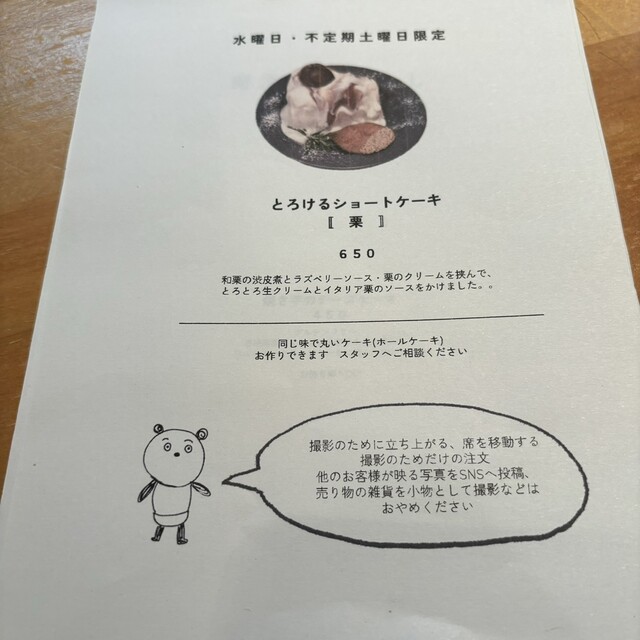 水曜日・不定期土曜日限定
とろけるショートケーキ
〚 栗 〛
６５０
和栗の渋皮煮とラズベリーソース・栗のクリームを挟んで、
とろとろ生クリームとイタリア栗のソースをかけました。。
同じ味で丸いケーキ(ホールケーキ)
お作りできます　スタッフへご相談ください
撮影のために立ち上がる、席を移動する
撮影のためだけの注文
他のお客様が映る写真をSNSへ投稿、
売り物の雑貨を小物として撮影などは
おやめください